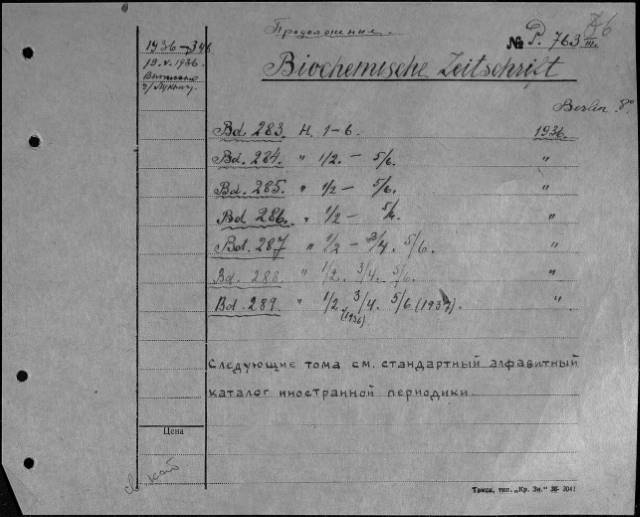 Продолжение.
№ P. 763 III.
1936-348
19.V.1936
Biochemische Zeitschrift
Berlin. 8°
Bd. 283 H. 1-6. 1936.
Bd. 284. " 1/2. - 5/6. "
Bd. 285. " 1/2 - 5/6. "
Bd. 286. " 1/2 - 5/6. "
Bd. 287 " 1/2 - 3/4. 5/6. "
Bd. 288. " 1/2. 3/4. 5/6. "
Bd. 289. " 1/2 3/4. 5/6. (1937). "
(1936)
Следующие тома см. стандартный алфавитный
каталог иностранной периодики
Цена
Томск, тип. „Кр. Зн." № 3041